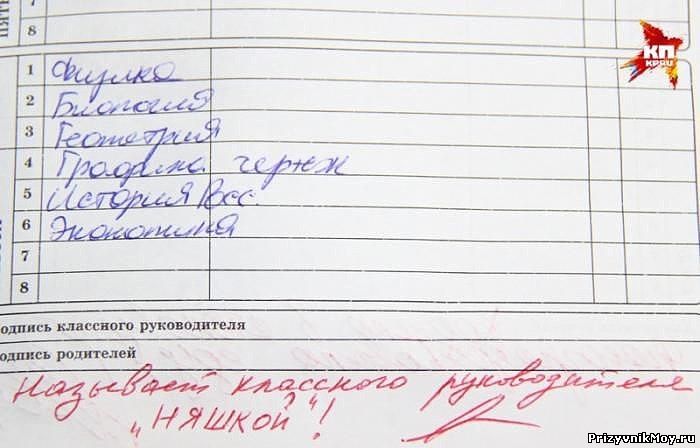 8
КП
KP.RU
1 Физика
2 Биология
3 Геометрия
4 Графика черж
5 История Рос
6 Экономика
7
8
одпись классного руководителя
одпись родителей
Называет классного руководителя
„НЯШКОЙ"!
PrizyvnikMoy.ru